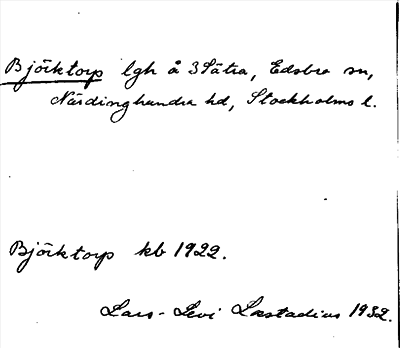 Björktorp lgh å 3 Sätra, Edsbro sn,
Närdinghundra hd, Stockholms l.
Björktorp kb 1922.
Lars-Levi Læstadius 1932.